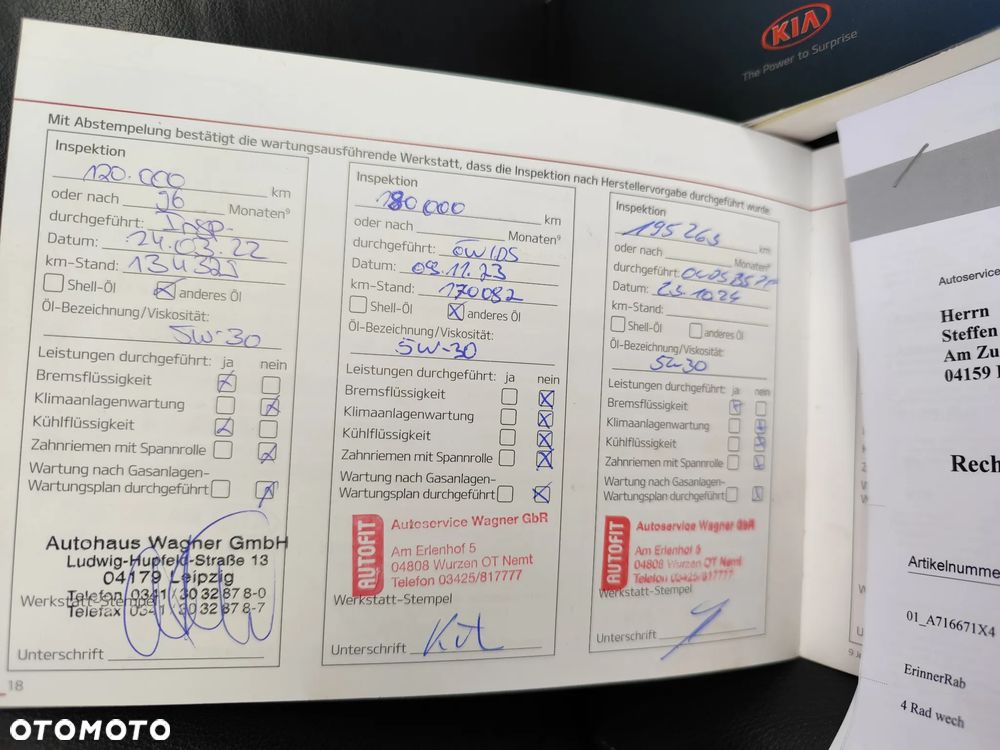 KIA
The Power to Surprise
Mit Abstempelung bestätigt die wartungsausführende Werkstatt, dass die Inspektion nach Herstellervorgabe durchgeführt wurde:
Inspektion
120.000 km
oder nach 96 Monaten⁹
durchgeführt: Insp.
Datum: 24.03.22
km-Stand: 134325
Shell-Öl anderes Öl
Öl-Bezeichnung/Viskosität:
5W-30
Leistungen durchgeführt: ja nein
Bremsflüssigkeit
Klimaanlagenwartung
Kühlflüssigkeit
Zahnriemen mit Spannrolle
Wartung nach Gasanlagen-
Wartungsplan durchgeführt
Autohaus Wagner GmbH
Ludwig-Hupfeld-Straße 13
04179 Leipzig
Telefon 0341 / 30 32 87 8-0
Telefax 0341 / 30 32 87 8-7
Werkstatt-Stempel
Unterschrift
18
Inspektion
180000 km
oder nach Monaten⁹
durchgeführt: ÖW/DS
Datum: 09.11.23
km-Stand: 170082
Shell-Öl anderes Öl
Öl-Bezeichnung/Viskosität:
5W-30
Leistungen durchgeführt: ja nein
Bremsflüssigkeit
Klimaanlagenwartung
Kühlflüssigkeit
Zahnriemen mit Spannrolle
Wartung nach Gasanlagen-
Wartungsplan durchgeführt
AUTOFIT
Autoservice Wagner GbR
Am Erlenhof 5
04808 Wurzen OT Nemt
Telefon 03425/817777
Werkstatt-Stempel
Unterschrift
Inspektion
195263 km
oder nach Monaten⁹
durchgeführt:
Datum: 23.10.24
km-Stand:
Shell-Öl anderes Öl
Öl-Bezeichnung/Viskosität:
5W30
Leistungen durchgeführt: ja nein
Bremsflüssigkeit
Klimaanlagenwartung
Kühlflüssigkeit
Zahnriemen mit Spannrolle
Wartung nach Gasanlagen-
Wartungsplan durchgeführt
AUTOFIT
Autoservice Wagner GbR
Am Erlenhof 5
04808 Wurzen OT Nemt
Telefon 03425/817777
Werkstatt-Stempel
Unterschrift
Autoservice
Herrn
Steffen
Am Zu
04159
Rech
Artikelnumme
01_A716671X4
ErinnerRab
4 Rad wech
OTOMOTO